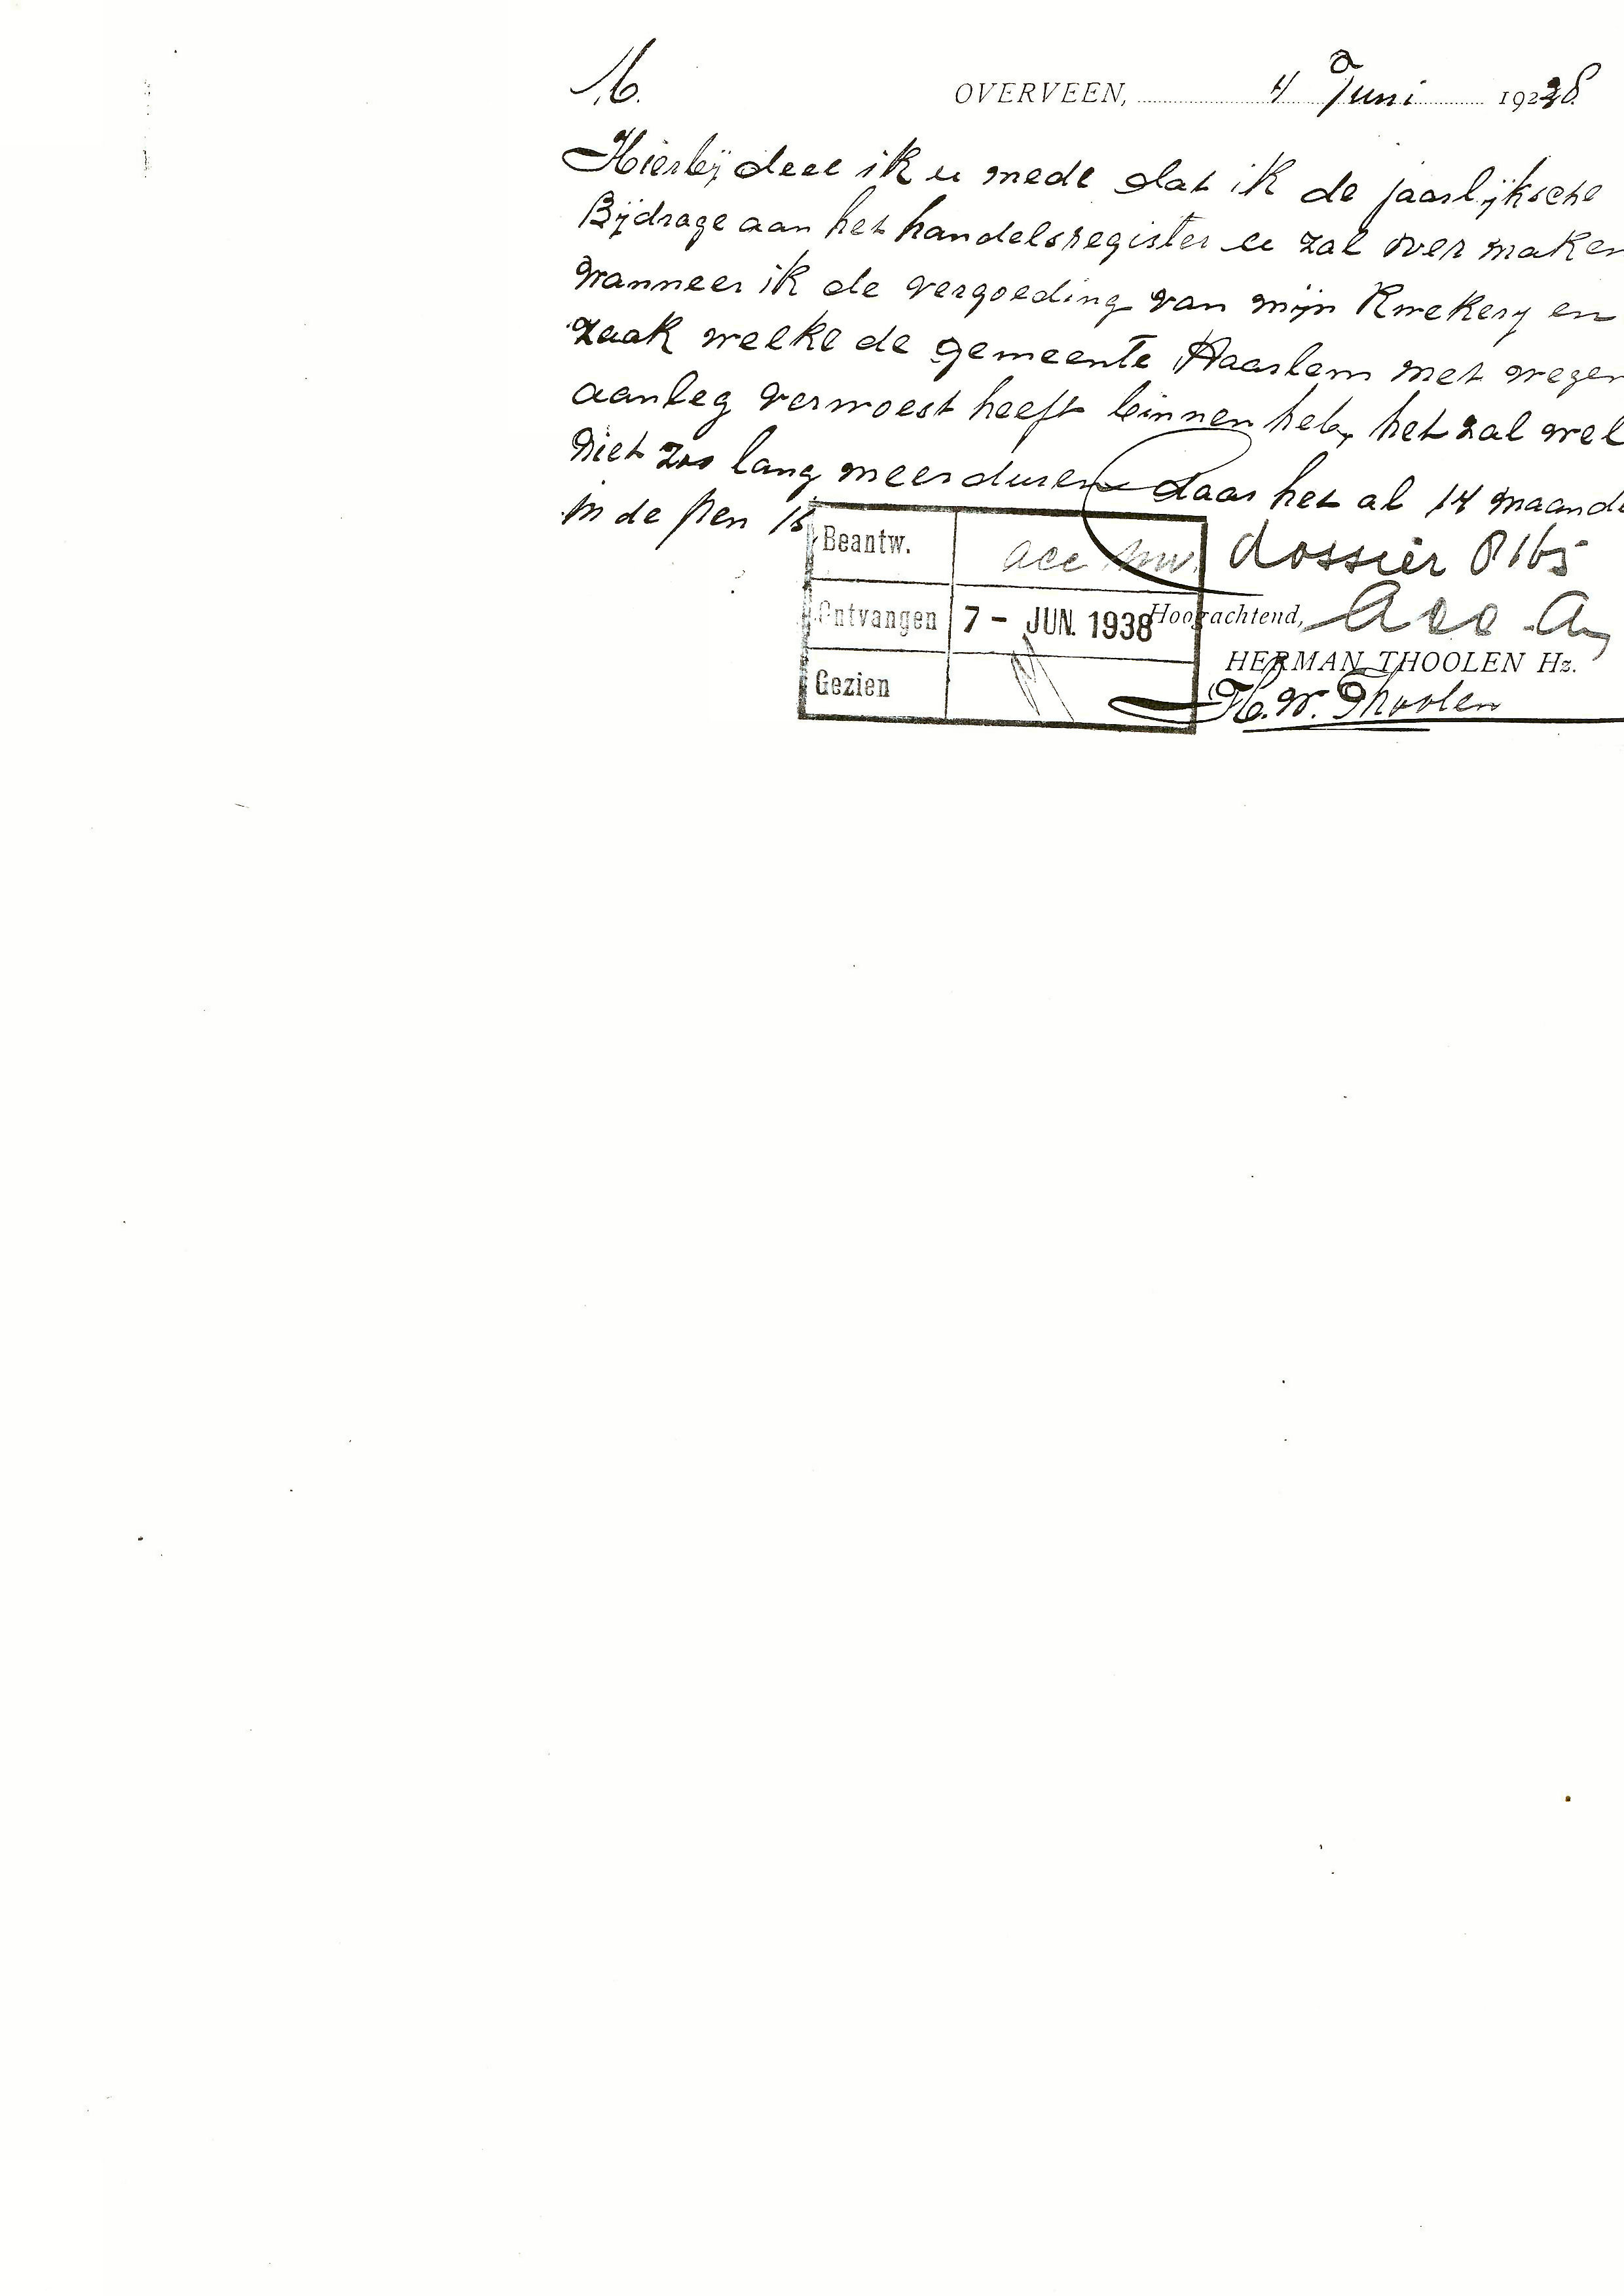 M.
OVERVEEN, 4 Juni 1938
Hierbij deel ik u mede dat ik de jaarlijksche
Bijdrage aan het handelsregister u zal over maken
wanneer ik de vergoeding van mijn Kwekery en
zaak welke de gemeente Haarlem met wegen
aanleg verwoest heeft binnen heb, het zal wel
niet zoo lang meer duren daar het al 14 maande
in de pen is
Beantw.
dossier 8165
Ontvangen 7 - JUN. 1938
Hoogachtend,
HERMAN THOOLEN Hz.
Gezien
H. W. Thoolen